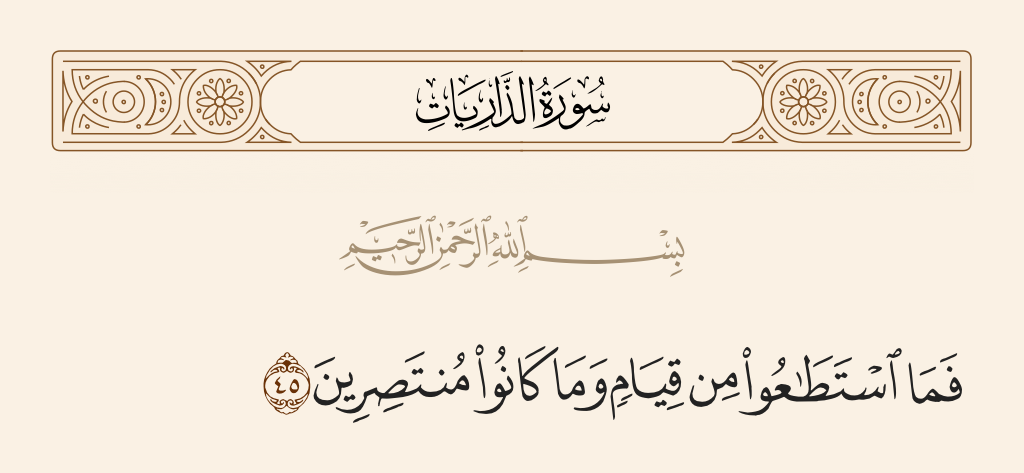 سُورَةُ الذَّارِيَاتِ
بِسْمِ ٱللَّهِ ٱلرَّحْمَٰنِ ٱلرَّحِيمِ
فَمَا ٱسْتَطَٰعُوا۟ مِن قِيَامٍ وَمَا كَانُوا۟ مُنتَصِرِينَ ٤٥